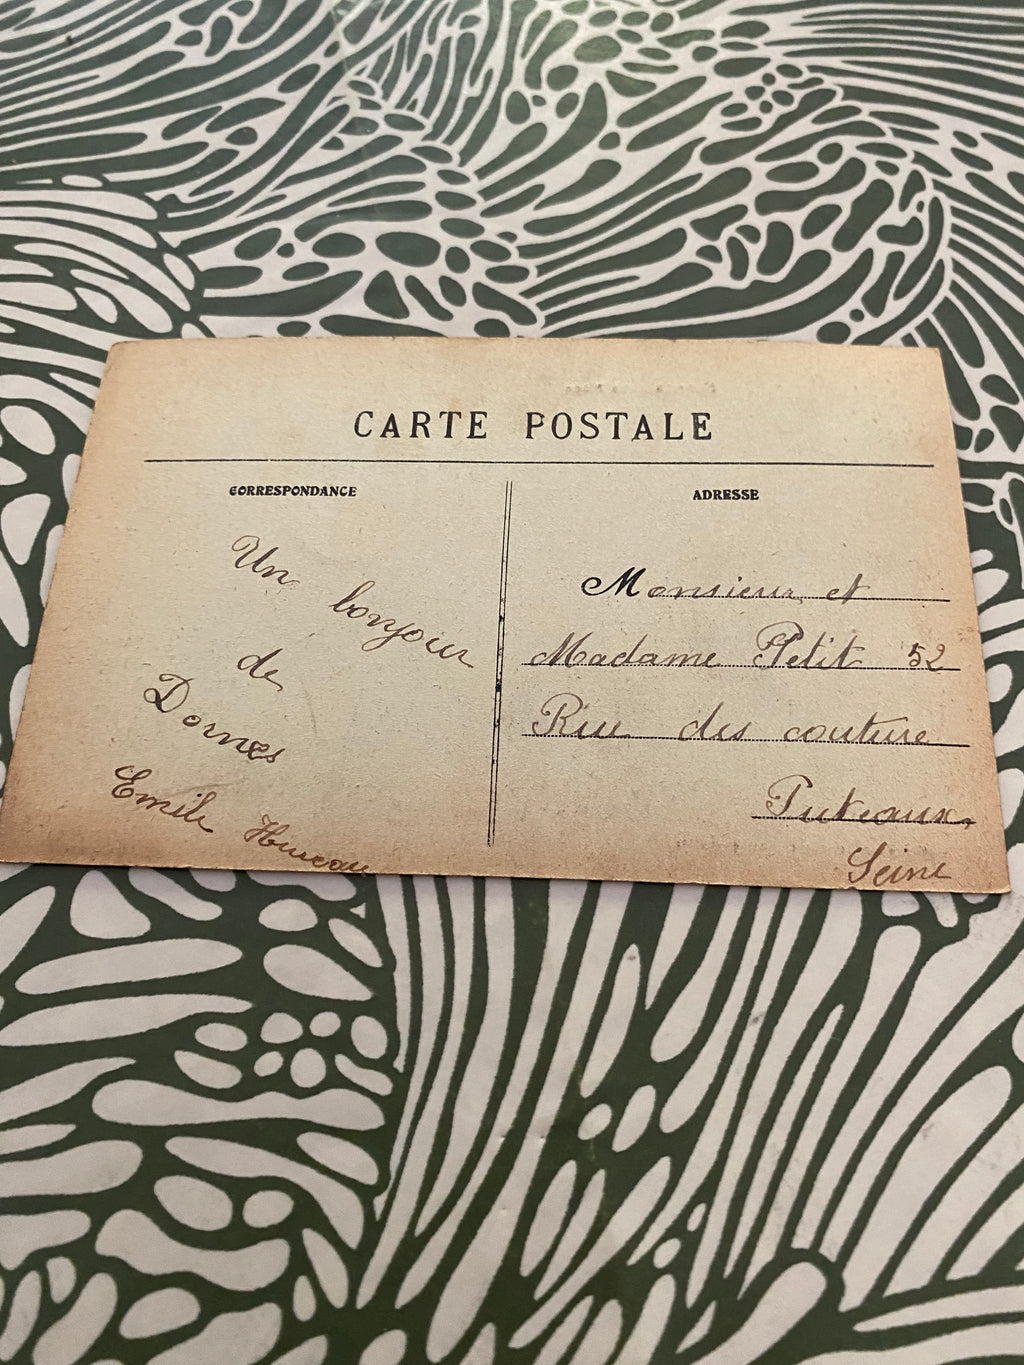 CARTE POSTALE
CORRESPONDANCE
Un
bonjour
de
Dornes
Emile Hureau
ADRESSE
Monsieur et
Madame Petit 52
Rue des couture
Puteaux
Seine